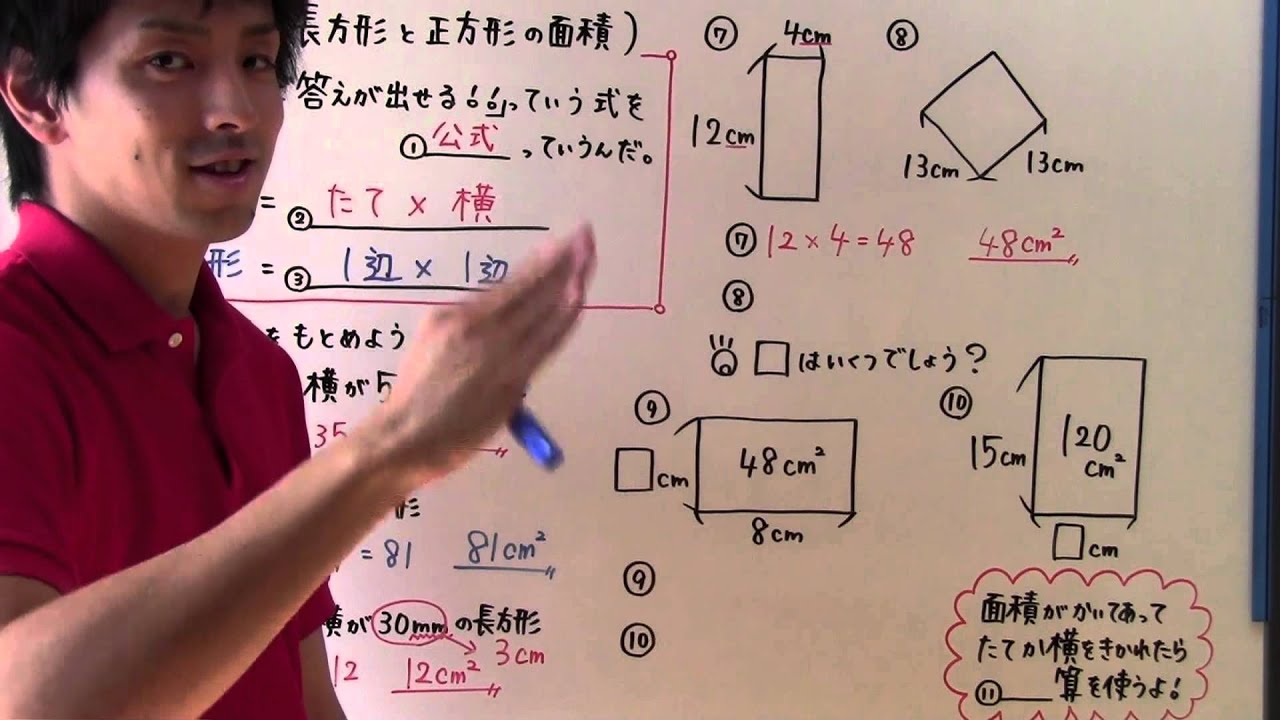 長方形と正方形の面積)
答えが出せる!!」っていう式を
① 公式 っていうんだ。
= ② たて × 横
形 = ③ 1辺 × 1辺
をもとめよう
横が5
35
形
= 81 81cm²
横が30mmの長方形
3cm
12 12cm²
⑦ 4cm
12cm
⑧
13cm 13cm
⑦ 12×4=48 48cm²
⑧
□はいくつでしょう?
⑨
□cm 48cm²
8cm
⑩
15cm 120
cm²
□cm
⑨
⑩
面積がかいてあって
たてか横をきかれたら
⑪ 算を使うよ!